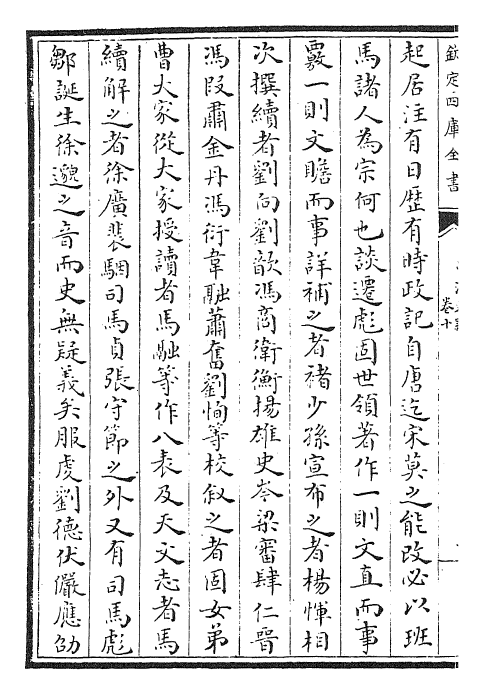 欽定四庫全書
卷十
起居注有日歴有時政記自唐迄宋莫之能改必以班
馬諸人為宗何也談遷彪固世領著作一則文直而事
覈一則文贍而事詳補之者禇少孫宣布之者楊惲相
次撰續者劉向劉歆馮商衛衡揚雄史岑梁審肆仁晉
馮段肅金丹馮衍韋融蕭奮劉恂等校叙之者固女弟
曹大家從大家授讀者馬融等作八表及天文志者馬
續解之者徐廣裴駰司馬貞張守節之外又有司馬彪
鄒誕生徐邈之音而史無疑義矣服虔劉德伏儼應劭